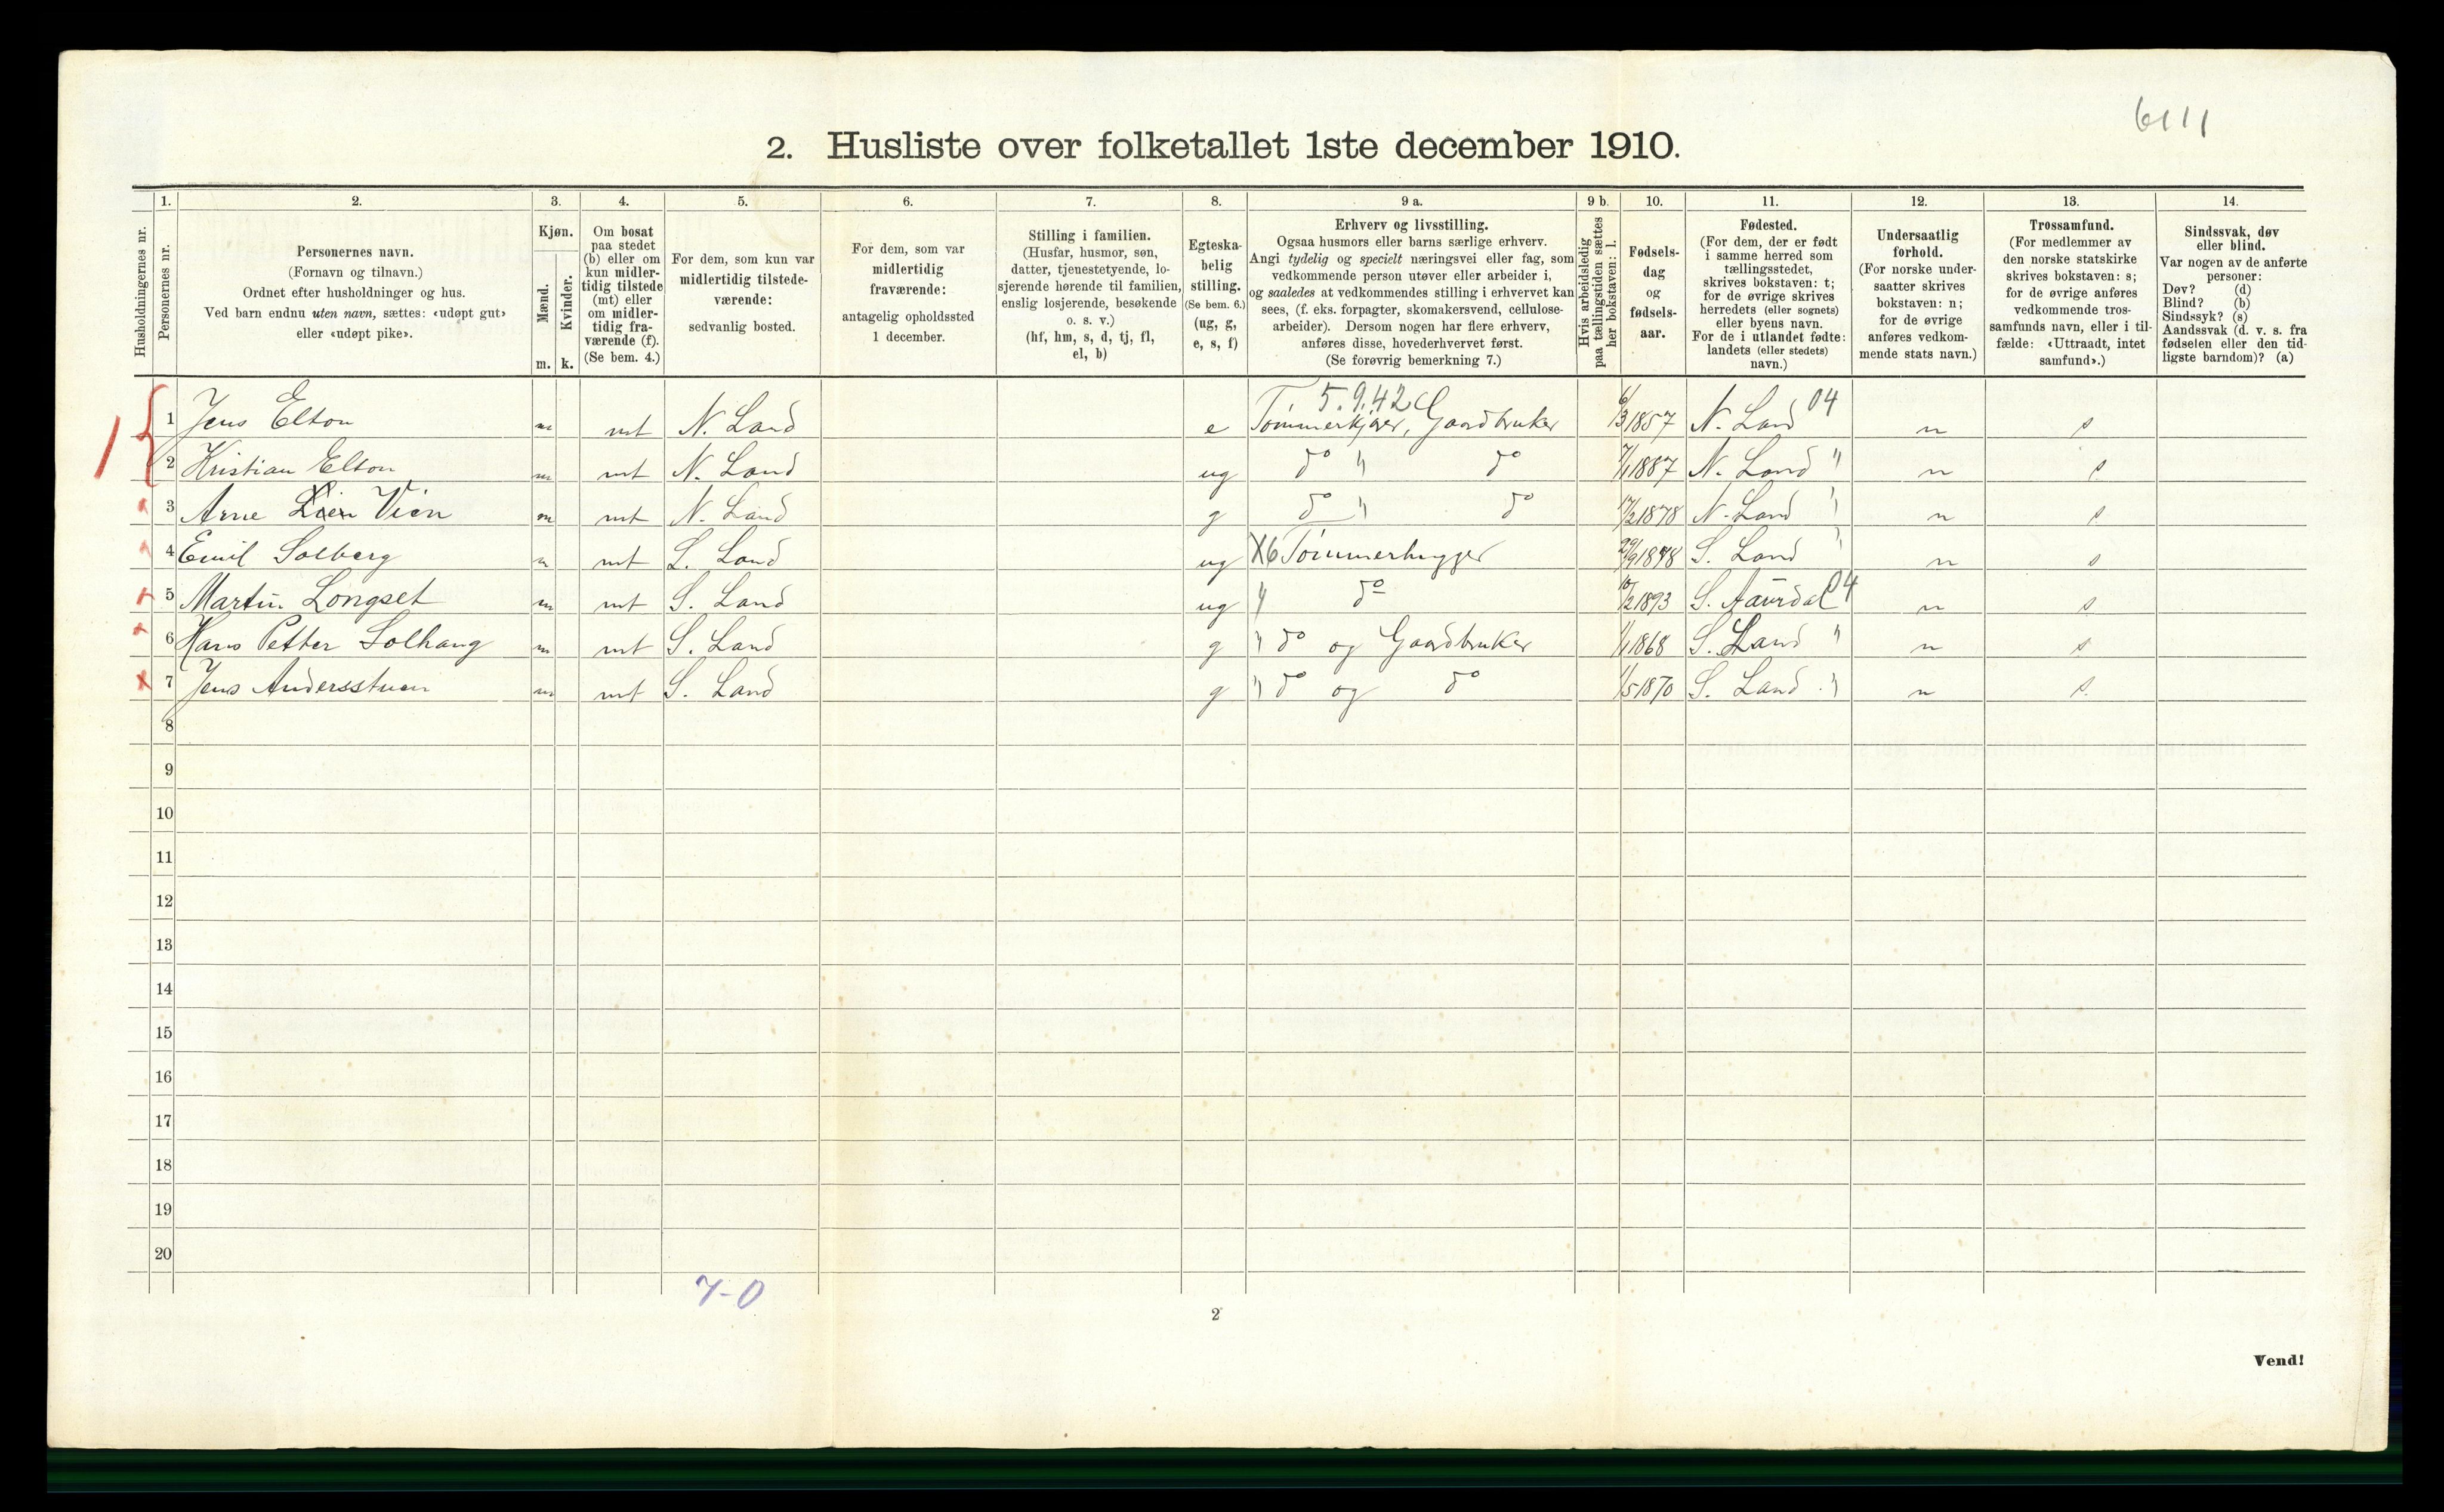 6111
2. Husliste over folketallet 1ste december 1910.
Husholdningernes nr.
1. 2. 3. 4. 5. 6. 7. 8. 9 a. 9 b. 10. 11. 12. 13. 14.
Personernes nr.
Personernes navn.
(Fornavn og tilnavn.)
Ordnet efter husholdninger og hus.
Ved barn endnu uten navn, sættes: «udøpt gut»
eller «udøpt pike».
Kjøn.
Mænd.
Kvinder.
m. k.
Om bosat
paa stedet
(b) eller om
kun midler-
tidig tilstede
(mt) eller
om midler-
tidig fra-
værende (f).
(Se bem. 4.)
For dem, som kun var
midlertidig tilstede-
værende:
sedvanlig bosted.
For dem, som var
midlertidig
fraværende:
antagelig opholdssted
1 december.
Stilling i familien.
(Husfar, husmor, søn,
datter, tjenestetyende, lo-
sjerende hørende til familien,
enslig losjerende, besøkende
o. s. v.)
(hf, hm, s, d, tj, fl,
el, b)
Egteska-
belig
stilling.
(Se bem. 6.)
(ug, g,
e, s, f)
Erhverv og livsstilling.
Ogsaa husmors eller barns særlige erhverv.
Angi tydelig og specielt næringsvei eller fag, som
vedkommende person utøver eller arbeider i,
og saaledes at vedkommendes stilling i erhvervet kan
sees, (f. eks. forpagter, skomakersvend, cellulose-
arbeider). Dersom nogen har flere erhverv,
anføres disse, hovederhvervet først.
(Se forøvrig bemerkning 7.)
Hvis arbeidsledig
paa tællingstiden sættes
her bokstaven: l.
Fødsels-
dag
og
fødsels-
aar.
Fødested.
(For dem, der er født
i samme herred som
tællingsstedet,
skrives bokstaven: t;
for de øvrige skrives
herredets (eller sognets)
eller byens navn.
For de i utlandet fødte:
landets (eller stedets)
navn.)
Undersaatlig
forhold.
(For norske under-
saatter skrives
bokstaven: n;
for de øvrige
anføres vedkom-
mende stats navn.)
Trossamfund.
(For medlemmer av
den norske statskirke
skrives bokstaven: s;
for de øvrige anføres
vedkommende tros-
samfunds navn, eller i til-
fælde: «Uttraadt, intet
samfund».)
Sindssvak, døv
eller blind.
Var nogen av de anførte
personer:
Døv? (d)
Blind? (b)
Sindssyk? (s)
Aandssvak (d. v. s. fra
fødselen eller den tid-
ligste barndom)? (a)
5.9.42 04
1 Jens Elton m mt N. Land e Tømmerkjører, Gaardbruker 6/3 1857 N. Land n s
2 Kristian Elton m mt N. Land ug do " do 7/1 1887 N. Land " n s
3 Arne Lien Vien m mt N. Land g do " do 17/2 1878 N. Land " n s
4 Emil Solberg m mt S. Land ug X6 Tømmerhugger 29/9 18 8 S. Land " n s
5 Martin Longset m mt S. Land ug " do 10/2 1893 S. Aurdal 04 n s
6 Hans Petter Solhaug m mt S. Land g " do og Gaardbruker 1/1 1868 S. Land " n s
7 Jens Andersstuen m mt S. Land g " do og do 1/5 1870 S. Land " n s.
8
9
10
11
12
13
14
15
16
17
18
19
20
7-0
2
Vend!